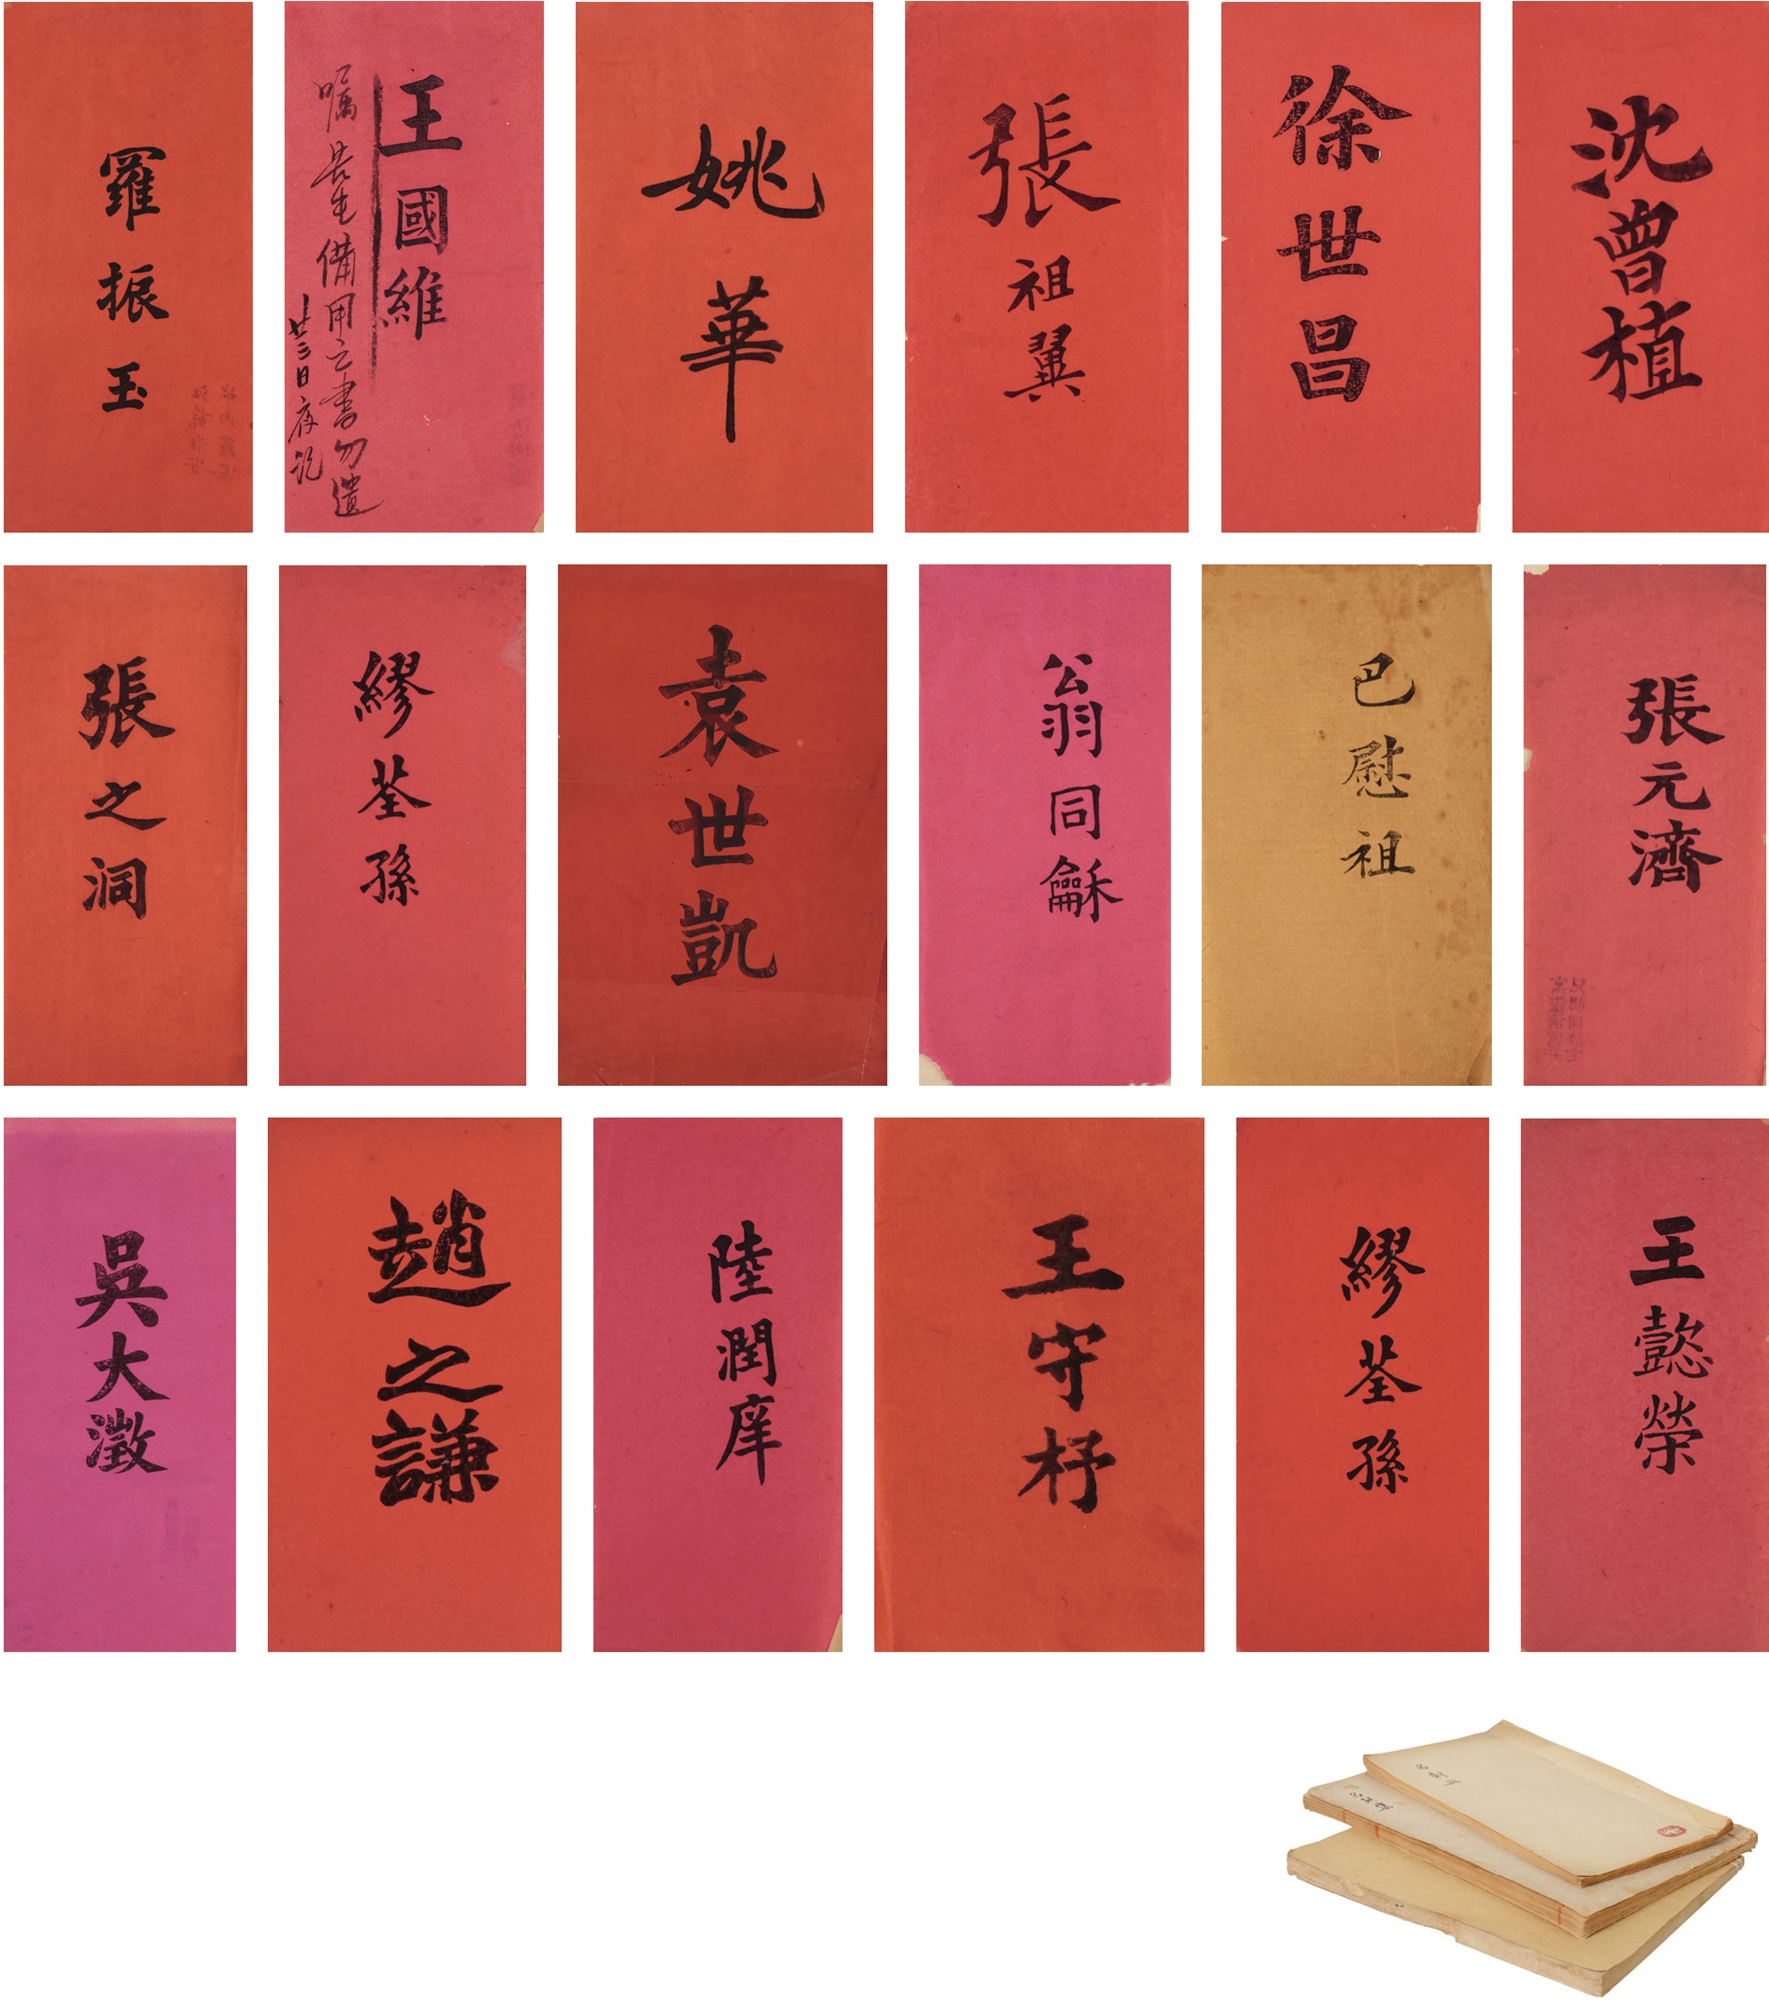 羅振玉
王國維
嘱先生備用之書勿遺
廿三日存記
姚華
張祖翼
徐世昌
沈曾植
張之洞
繆荃孫
袁世凱
翁同龢
巴慰祖
張元濟
吳大澂
趙之謙
陸潤庠
王守杼
繆荃孫
王懿榮